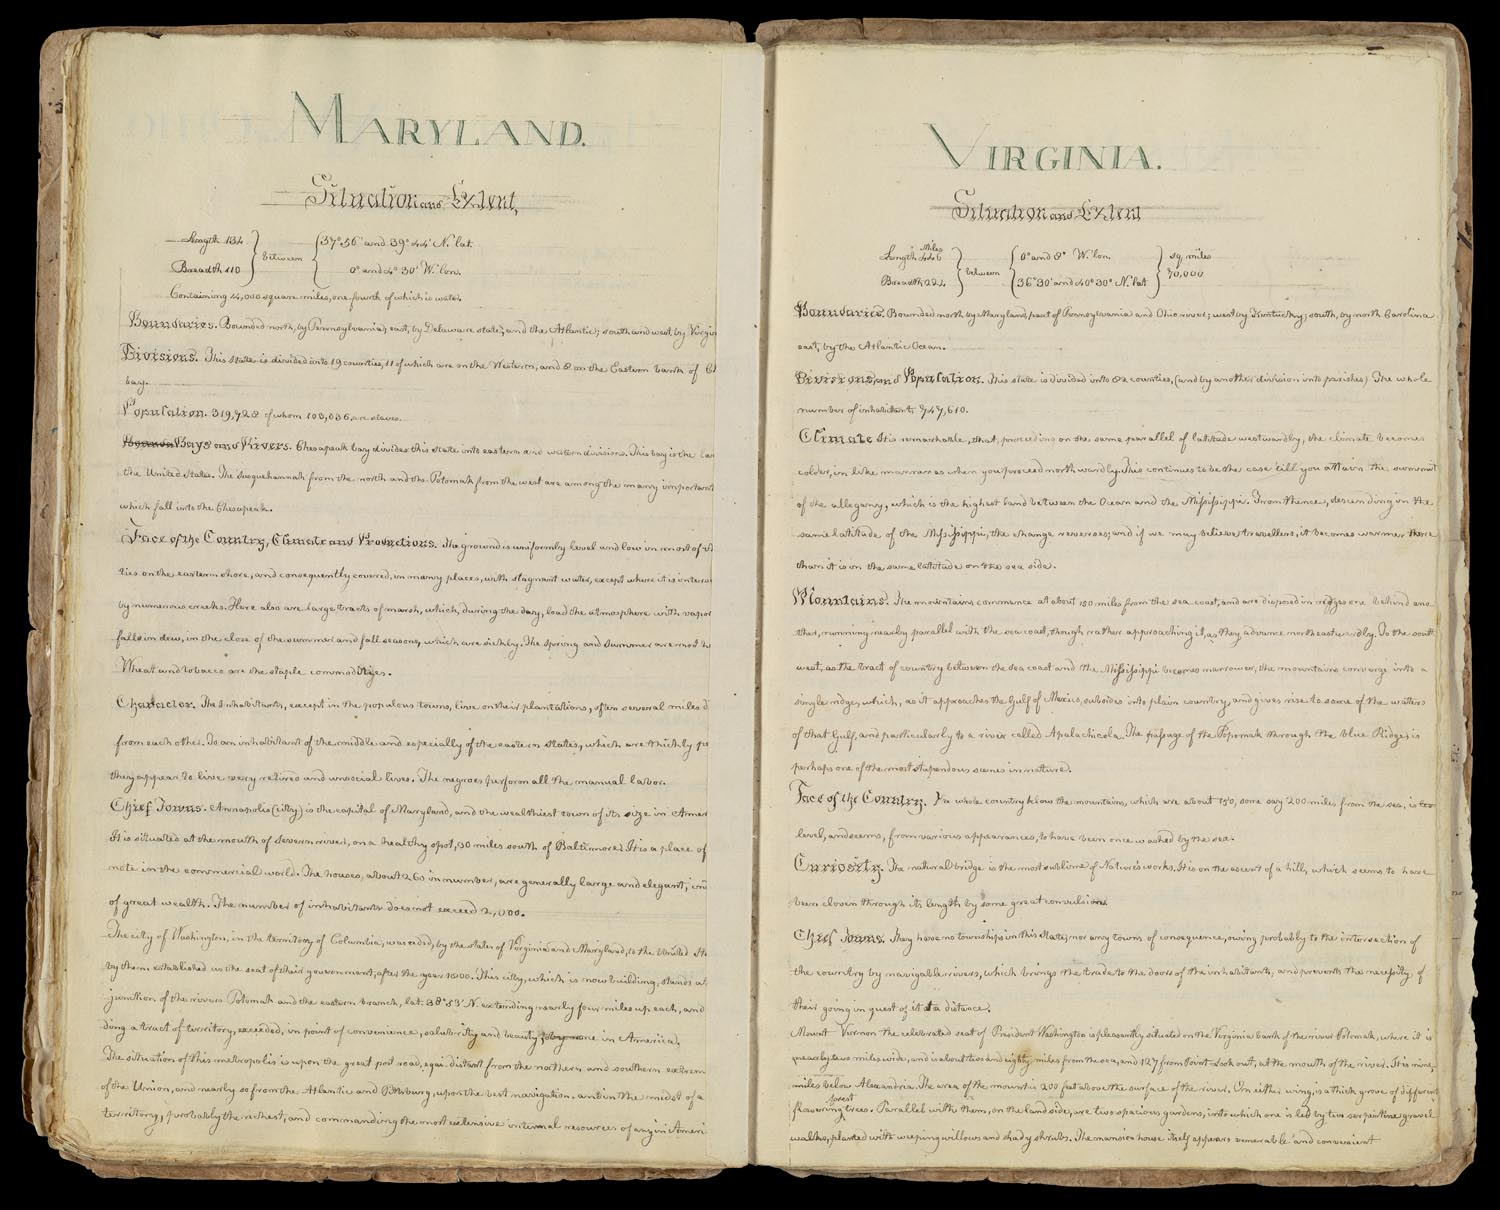 MARYLAND.
Situation and Extent,
Length 134
Breadth 110
between
37° 56' and 39° 44' N. lat.
0° and 4° 30' W. lon.
Containing 14,000 square miles, one fourth of which is water.
Boundaries. Bounded north, by Pennsylvania; east, by Delaware state, and the Atlantic; south and west, by Virgin
Divisions. This state is divided into 19 counties, 11 of which are on the Western, and 8 on the Eastern bank of
bay.
Population. 319,728 of whom 103,036, are slaves.
Bays and Rivers. Chesapeak bay divides this state into eastern and western divisions. This bay is the
the United States. The Susquehannah from the north and the Potomak from the west are among the many important
which fall into the Chesapeak.
Face of the Country, Climate and Productions. The ground is uniformly level and low in most of
ties on the eastern shore, and consequently covered, in many places, with stagnant water, except where it is
by numerous creeks. Here also are large tracts of marsh, which, during the day, load the atmosphere with vapor
falls in dew, in the close of the summer and fall seasons, which are sickly. The spring and summer are most
Wheat and tobacco are the staple commodities.
Character. The Inhabitants, except in the populous towns, live on their plantations, often several miles d
from each other. To an inhabitant of the middle and especially of the eastern states, which are thickly
they appear to live very retired and unsocial lives. The negroes perform all the manual labor.
Chief Towns. Annapolis (city) is the capital of Maryland, and the wealthiest town of its size in Amer
It is situated at the mouth of Severn river, on a healthy spot, 30 miles south of Baltimore. It is a place of
note in the commercial world. The houses, about 260 in number, are generally large and elegant,
of great wealth. The number of inhabitants does not exceed 2,000.
The city of Washington, in the territory of Columbia, was ceded, by the states of Virginia and Maryland, to the United St
by them established as the seat of their government, after the year 1800. This city, which is now building, stands at
junction of the rivers Potomak and the eastern branch, lat. 38° 53' N. extending nearly four miles up each, and
ding a tract of territory, exceeded, in point of convenience, salubrity and beauty, by none in America,
The situation of this metropolis is upon the great post road, equi-distant from the northern and southern extrem
of the Union, and nearly so from the Atlantic and Pittsburg, upon the best navigation, and in the midst of a
territory, probably the richest, and commanding the most extensive internal resources of any in Ameri
VIRGINIA.
Situation and Extent
Miles
Length 446
Breadth 224
between
0° and 8° W. lon.
36° 30' and 40° 30' N. lat
sq. miles
70,000
Boundaries. Bounded north by Maryland, part of Pennsylvania and Ohio river; west by Kentucky; south, by north Carolina
east, by the Atlantic Ocean.
Divisions, and Population. This state is divided into 82 counties, (and by another division into parishes) The whole
number of inhabitants 747,610.
Climate It is remarkable, that, proceeding on the same parallel of latitude westwardly, the climate becomes
colder, in like manner as when you proceed northwardly. This continues to be the case 'till you attain the summit
of the allegany, which is the highest land between the Ocean and the Missisippi. From thence, descending in the
same latitude of the Missisippi, the change reverses; and if we may believe travellers, it becomes warmer there
than it is in the same latitude on the sea side.
Mountains. The mountains commence at about 150 miles from the sea coast, and are disposed in ridges one behind ano
ther, running nearly parallel with the sea coast, though rather approaching it, as they advance northeastwardly. To the south
west, as the tract of country between the sea coast and the Missisippi becomes narrower, the mountains converge into a
single ridge, which, as it approaches the Gulf of Mexico, subsides into plain country, and gives rise to some of the waters
of that Gulf, and particularly to a river called Apalachicola. The passage of the Potomak through the blue Ridge is
perhaps one of the most stupendous scenes in nature.
Face of the Country. The whole country below the mountains, which are about 150, some say 200 miles from the sea, is
level, and seems, from various appearances, to have been once washed by the sea.
Curiosity. The natural bridge is the most sublime of Nature's works. It is on the ascent of a hill, which seems to have
been cloven through its length by some great convulsion.
Chief Towns. They have no townships in this state, nor any towns of consequence, owing probably to the intersection of
the country by navigable rivers, which brings the trade to the doors of the inhabitants, and prevents the necessity of
their going in quest of it at a distance.
Mount Vernon the celebrated seat of President Washington is pleasantly situated on the Virginia bank of the river Potomak, where it is
nearly two miles wide, and is about two and eighty miles from the sea, and 127 from Point Look out, at the mouth of the river. It is nine
miles below Alexandria. The area of the mount is 200 feet above the surface of the river. On either wing, is a thick grove of different
forest
flowering trees. Parallel with them, on the land side, are two spacious gardens, into which one is led by two serpentine gravel
walks, planted with weeping willows and shady shrubs. The mansion house itself appears venerable and convenient